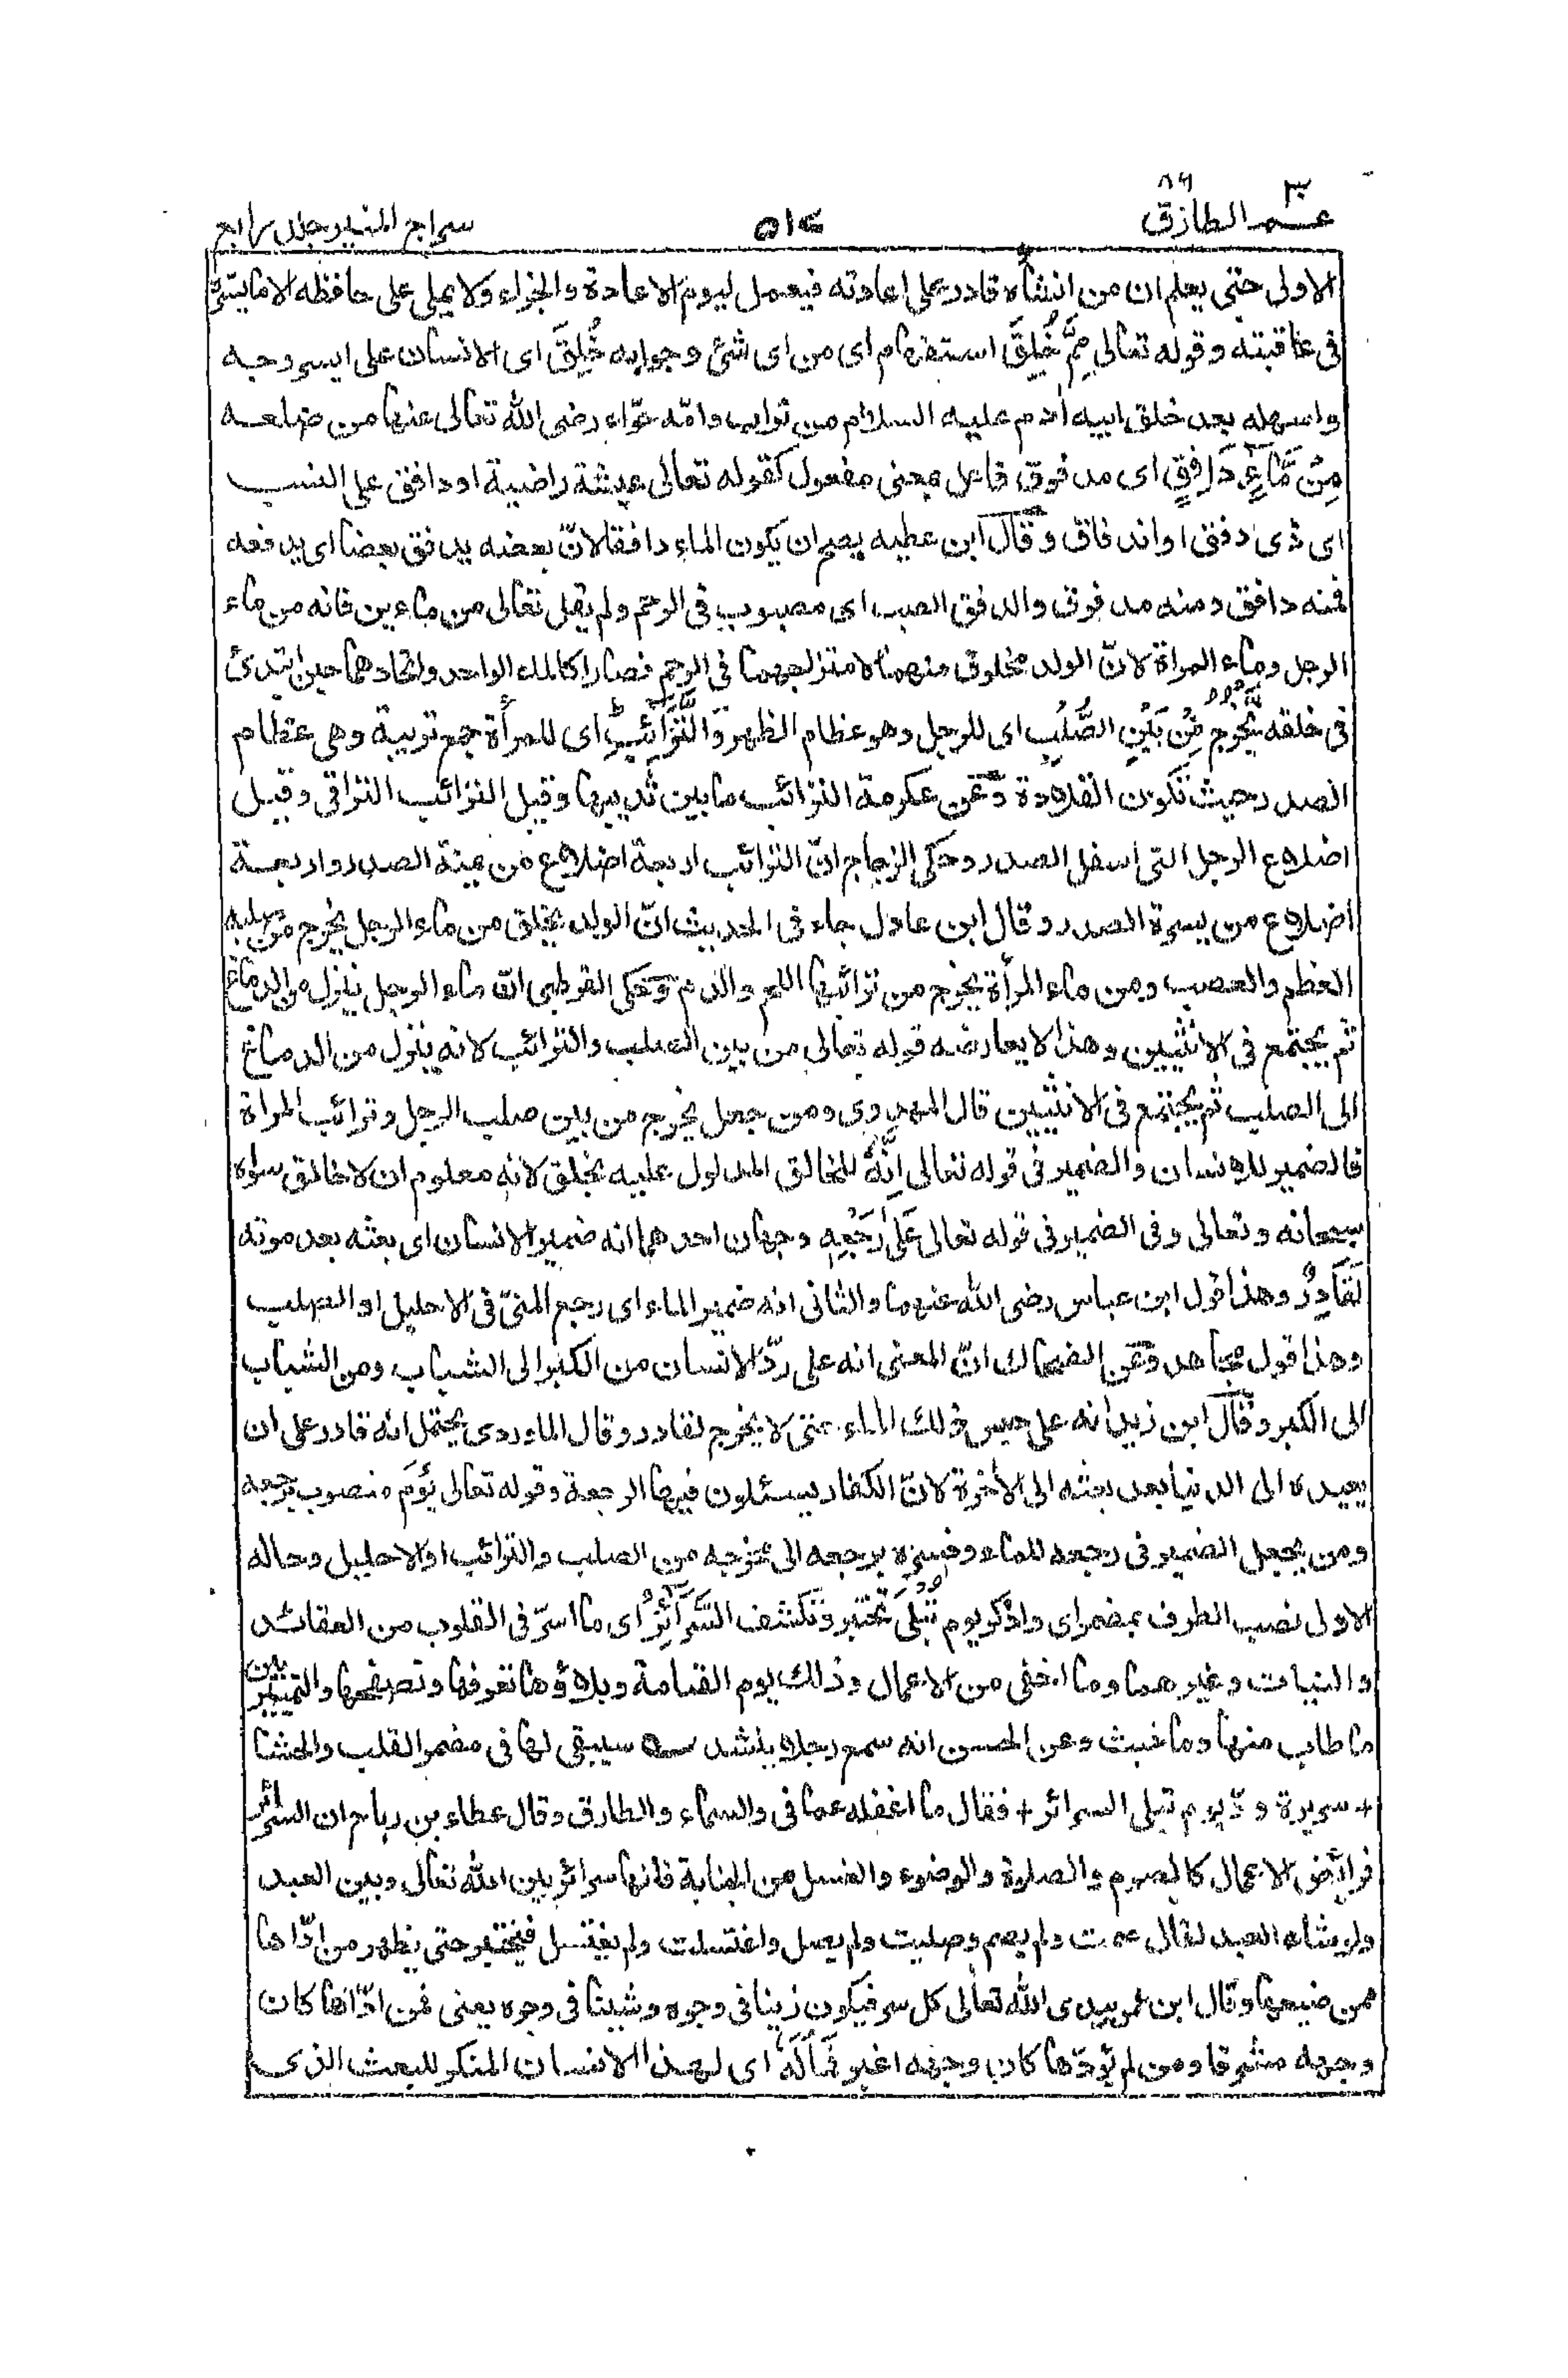 ٣٠ ٨٦
عــم الطارق ٥١٤ سراج المنير جلد رابع
الاولى حتى يعلم ان من انشاه قادر على اعادته فيعمل ليوم الاعادة والجزاء ولا يملى على حافظه الا ما يسرّه
فى عاقبته وقوله تعالى مِمَّ خُلِقَ استفهام اى من اى شئ وجوابه خُلِقَ اى الانسان على ايسر وجه
واسهله بعد خلق ابيه اٰدم عليه السلام من تراب وامّه حوّاء رضى الله تعالى عنها من ضلعه
مِنْ مَّاءٍ دَافِقٍ اى مدفوق فاعل بمعنى مفعول كقوله تعالى عيشة راضية او دافق على النسب
اى ذى دفق او اندفاق وقال ابن عطيه يصح ان يكون الماء دافقا لانّ بعضه يدفق بعضا اى يدفعه
فمنه دافق ومنه مدفوق والدفق الصب اى مصبوب فى الرحم ولم يقل تعالى من ماءين فانه من ماء
الرجل وماء المراة لانّ الولد مخلوق منهما لامتزاجهما فى الرحم فصارا كالماء الواحد واتحادهما حين ابتدئ
فى خلقه يَّخْرُجُ مِنْ بَيْنِ الصُّلْبِ اى للرجل وهو عظام الظهر وَالتَّرَائِبِ اى للمرأة جمع تريبة وهى عظام
الصدر حيث تكون القلادة وعن عكرمة الترائب ما بين ثدييها وقيل الترائب التراقى وقيل
اضلاع الرجل التى اسفل الصدر وحكى الزجاج انّ الترائب اربعة اضلاع من يمنة الصدر واربعة
اضلاع من يسرة الصدر وقال ابن عادل جاء فى الحديث انّ الولد يخلق من ماء الرجل يخرج من صلبه
العظم والعصب ومن ماء المرأة يخرج من ترائبها اللحم والدم وحكى القرطبى انّ ماء الرجل ينزل من الدماغ
ثم يجتمع فى الانثيين وهذا لا يعارضه قوله تعالى من بين الصلب والترائب لانه ينزل من الدماغ
الى الصلب ثم يجتمع فى الانثيين قال المهدوى ومن جعل يخرج من بين صلب الرجل وترائب المراة
فالضمير للانسان والضمير فى قوله تعالى اِنَّهٗ للخالق المدلول عليه بخلق لانه معلوم ان لا خالق سواه
سبحانه وتعالى وفى الضمير فى قوله تعالى عَلٰى رَجْعِهٖ وجهان احدهما انه ضمير الانسان اى بعثه بعد موته
لَقَادِرٌ وهذا قول ابن عباس رضى الله عنهما والثانى انه ضمير الماء اى رجع المنىّ فى الاحليل او الصلب
وهذا قول مجاهد وعن الضحاك انّ المعنى انه على ردّ الانسان من الكبر الى الشباب ومن الشباب
الى الكبر وقال ابن زيد انه على حبس ذلك الماء حتى لا يخرج لقادر وقال الماوردى يحتمل انه قادر على ان
يعيده الى الدنيا بعد بعثه الى الأخرة لانّ الكفار يسئلون فيها الرجعة وقوله تعالى يَوْمَ منصوب برجعه
ومن يجعل الضمير فى رجعه للماء وفسره برجعه الى مخرجه من الصلب والترائب او الاحليل وحاله
الاولى نصب الظرف بمضمر اى واذكر يوم تُبْلَى تختبر وتكشف السَّرَائِرُ اى ما اسرّ فى القلوب من العقائد
والنيات وغيرهما وما اخفى من الاعمال وذلك يوم القيامة وبلاؤها تعرفها وتصفحها والتمييز بين
ما طاب منها وما خبث وعن الحسن انه سمع رجلا ينشد سيبقى لها فى مضمر القلب والحشا
+ سريرة ودّ يوم تبلى السرائر + فقال ما اغفله عما فى والسماء والطارق وقال عطاء بن رباح ان السرائر
فرائض الاعمال كالصوم والصلوة والوضوء والغسل من الجنابة فانها سرائر بين الله تعالى وبين العبد
ولو يشاء العبد لقال صمت ولم يصم وصليت ولم يصل واغتسلت ولم يغتسل فيختبر حتى يظهر من ادّاها
ممن ضيعها وقال ابن عمر يبدى الله تعالى كل سر فيكون زينا فى وجوه وشينا فى وجوه يعنى فمن ادّاها كان
وجهه مشرقا ومن لم يؤدّها كان وجهه اغبر فَمَا لَهٗ اى لهذا الانسان المنكر للبعث الذى